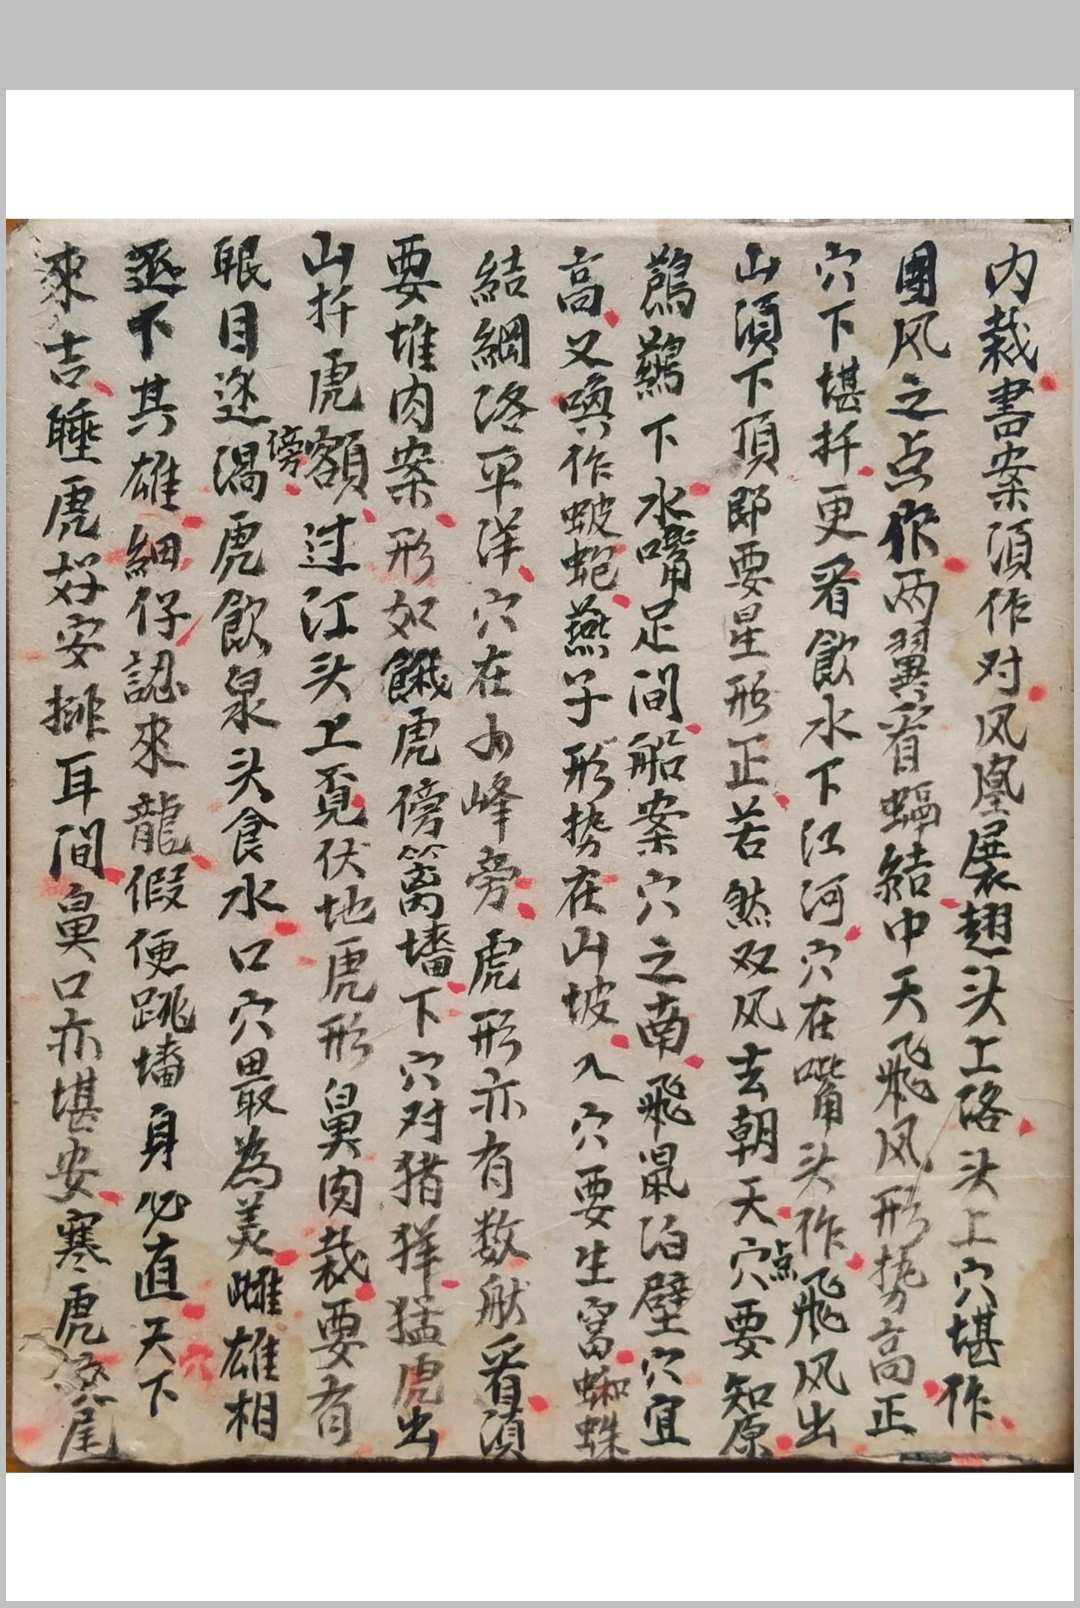 内裁書案須作对风凰展翅头上洛头上穴堪作
團风之点作两翼眉蝠結中天飛风形势高正
穴下堪扦更看飲水下江河穴在嘴头作飛风出
山須下頂即要星形正若然双风去朝天穴点要知原
鷓鷀下水嘴足间船案穴之南飛鼠泊壁穴宜
高又喚作蚾蚫燕子形势在山坡入穴要生窩蜘蛛
結網洛平洋穴在山峰旁虎形亦有数般看須
要堆肉案形如餓虎傍篱墻下穴对猪羊猛虎出
山扦虎額傍过江头上覓伏地虎形鼻肉裁要有
眠目迯渴虎飲泉头食水口穴最為美雌雄相
逐下其雄細仔認來龍假便跳墻身必直天下穴
來吉睡虎好安排耳间鼻口亦堪安寒虎落尾